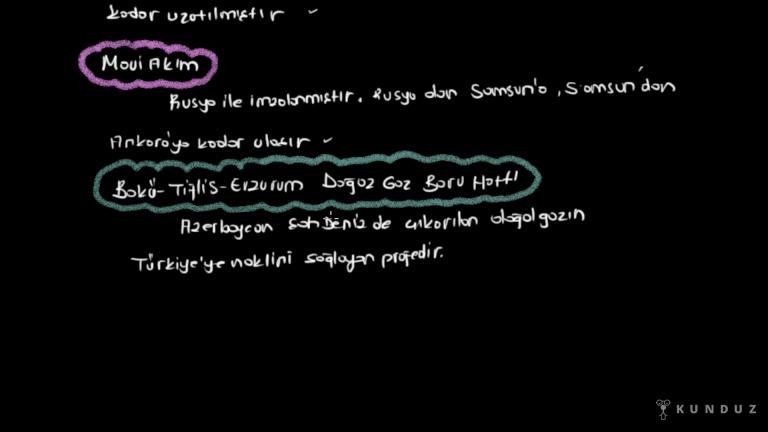 kadar uzatılmıştır
Mavi Akım
Rusya ile imzalanmıştır. Rusya dan Samsun'a, Samsun'dan
Ankara'ya kadar ulaşır
Bakü-Tiflis-Erzurum Doğaz Gaz Boru Hattı
Azerbaycan Şah Deniz de çıkarılan doğalgazın
Türkiye'ye naklini sağlayan projedir.
KUNDUZ